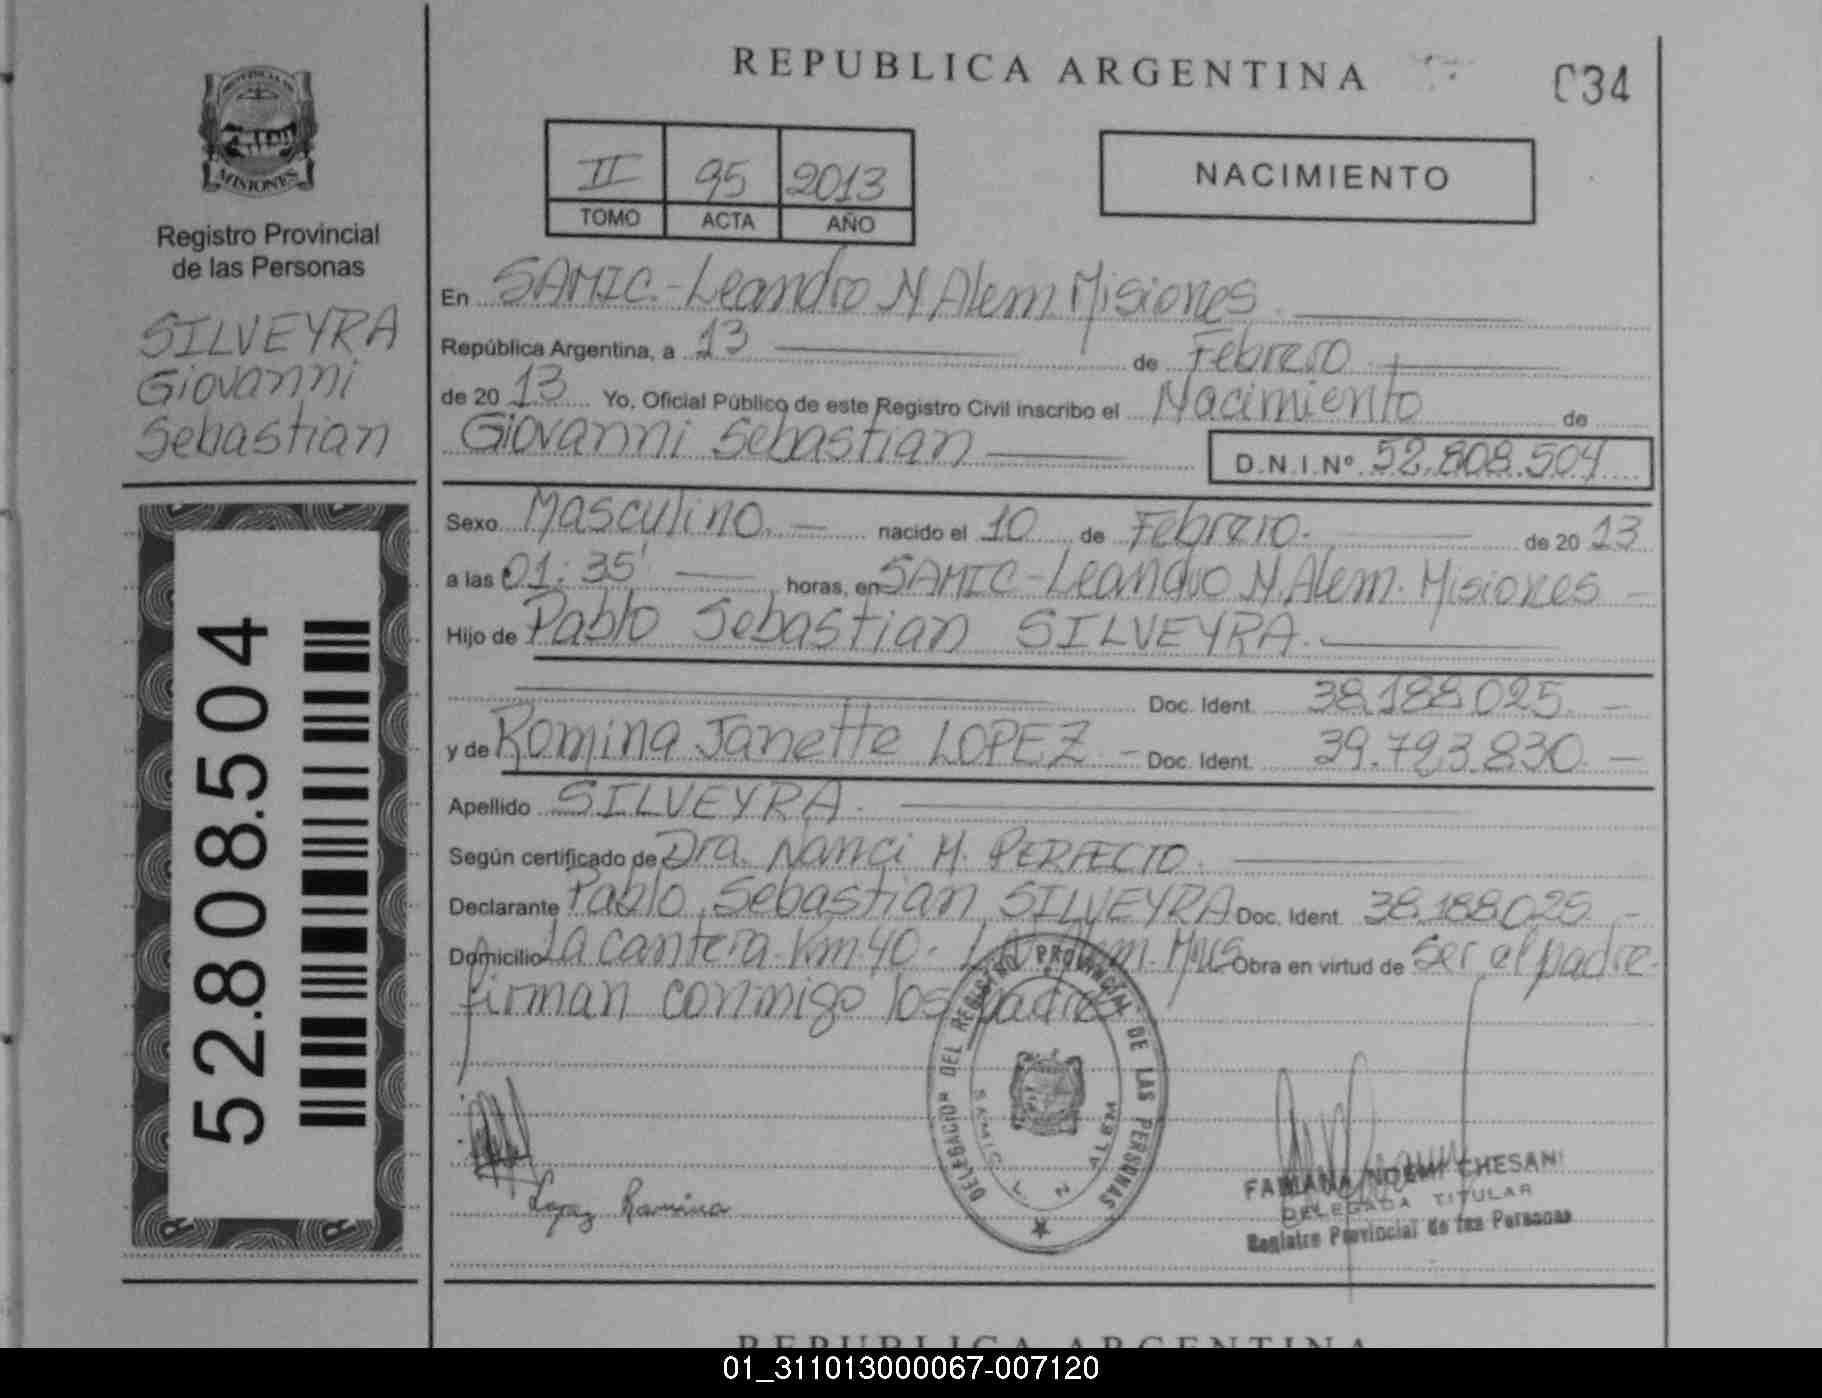 REPUBLICA ARGENTINA
034
MISIONES
Registro Provincial
de las Personas
SILVEYRA
Giovanni
Sebastian
52.808.504
II 95 2013
TOMO ACTA AÑO
NACIMIENTO
En SAMIC.-Leandro N Alem. Misiones
República Argentina, a 13 de Febrero
de 20 13 Yo, Oficial Público de este Registro Civil inscribo el Nacimiento de
Giovanni Sebastian D.N.I.Nº 52.808.504
Sexo Masculino. nacido el 10 de Febrero. de 20 13
a las 01:35' horas, en SAMIC-Leandro N. Alem. Misiones
Hijo de Pablo Sebastian SILVEYRA.
Doc. Ident. 38.188.025.
y de Romina Janette LOPEZ Doc. Ident. 39.723.830.
Apellido SILVEYRA.
Según certificado de Dra. Nanci M. PERFECTO.
Declarante Pablo Sebastian SILVEYRA Doc. Ident. 38.188.025.
Domicilio La cantera Km 40. Obra en virtud de ser el padre.
firman conmigo los padres
DELEGACION DEL REGISTRO PROVINCIAL DE LAS PERSONAS
SAMIC L. N ALEM
Lopez Romina
FABIANA NOEMI CHESANI
DELEGADA TITULAR
Registro Provincial de las Personas
REPUBLICA ARGENTINA
01_311013000067-007120